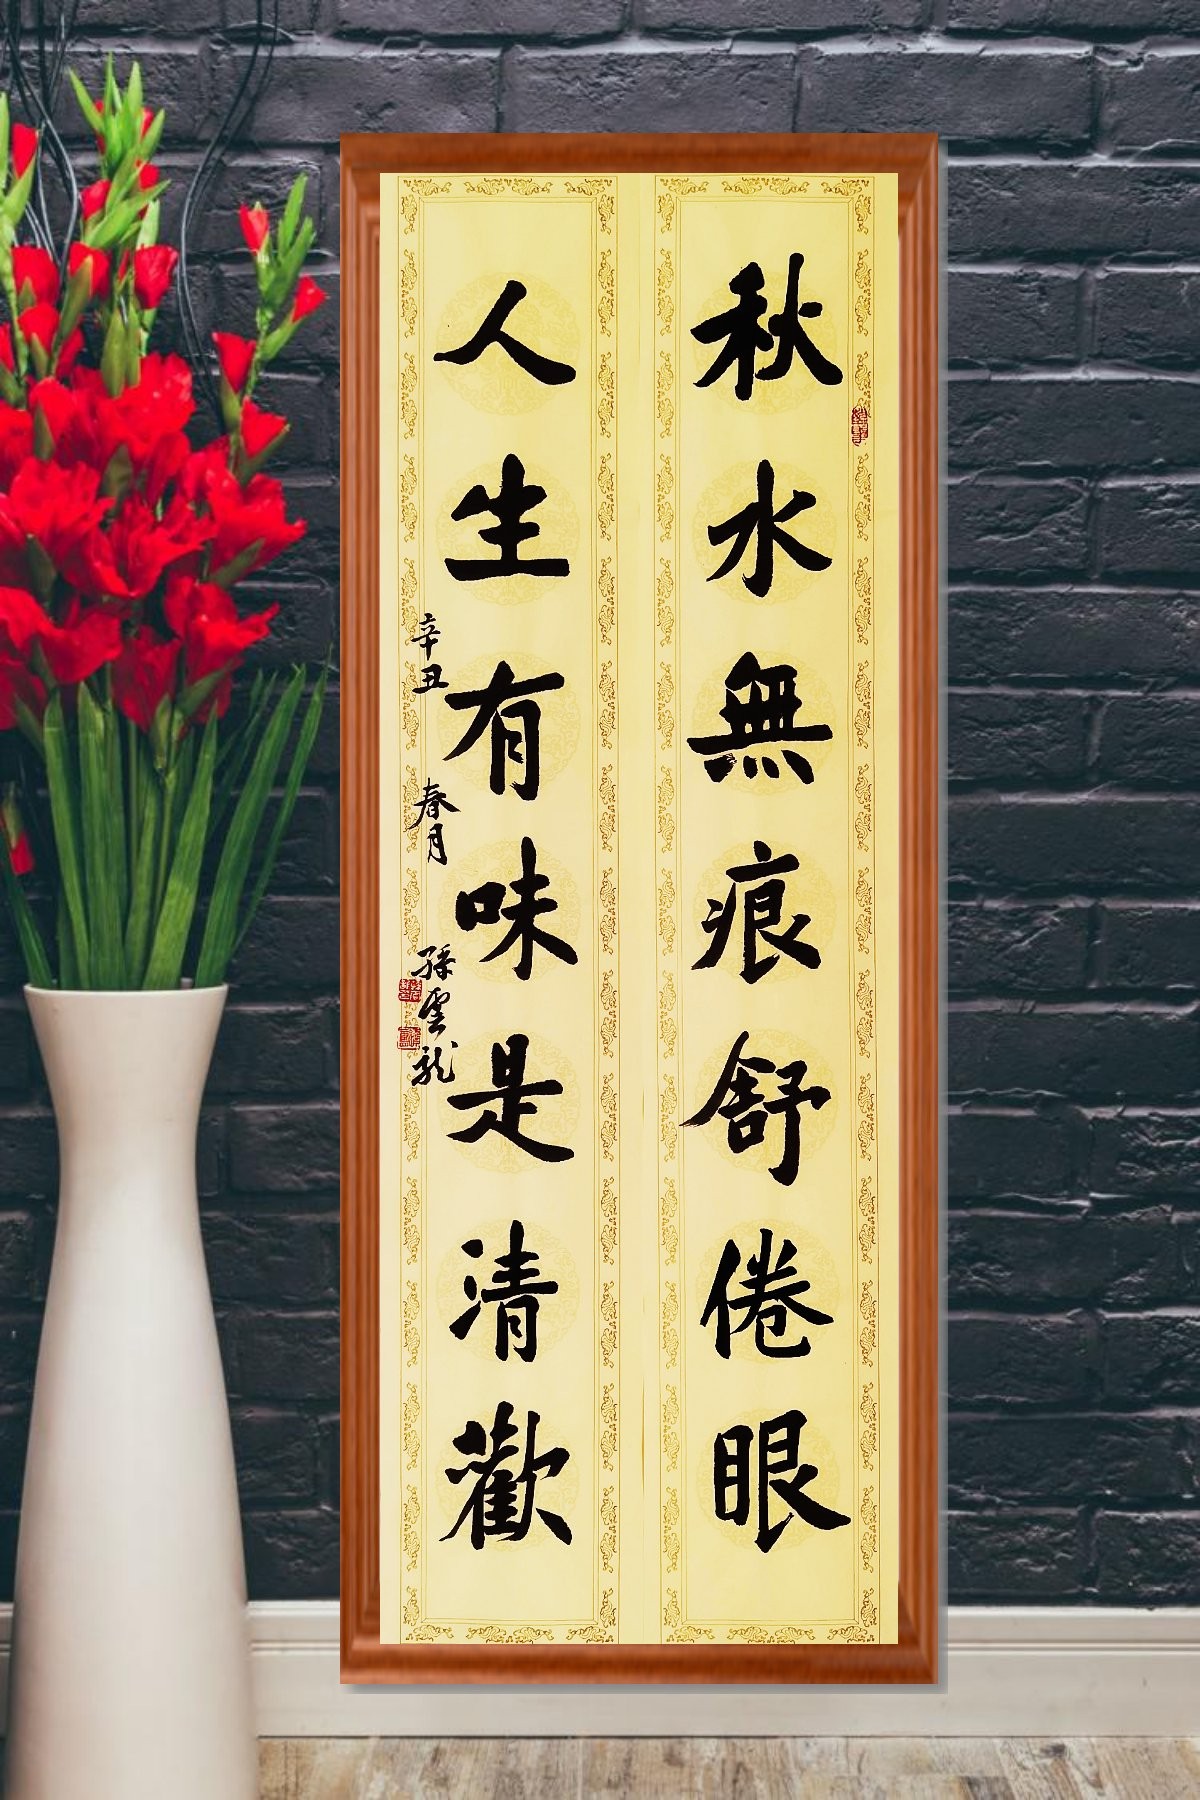 秋水無痕舒倦眼
人生有味是清歡
辛丑春月孫雲龍